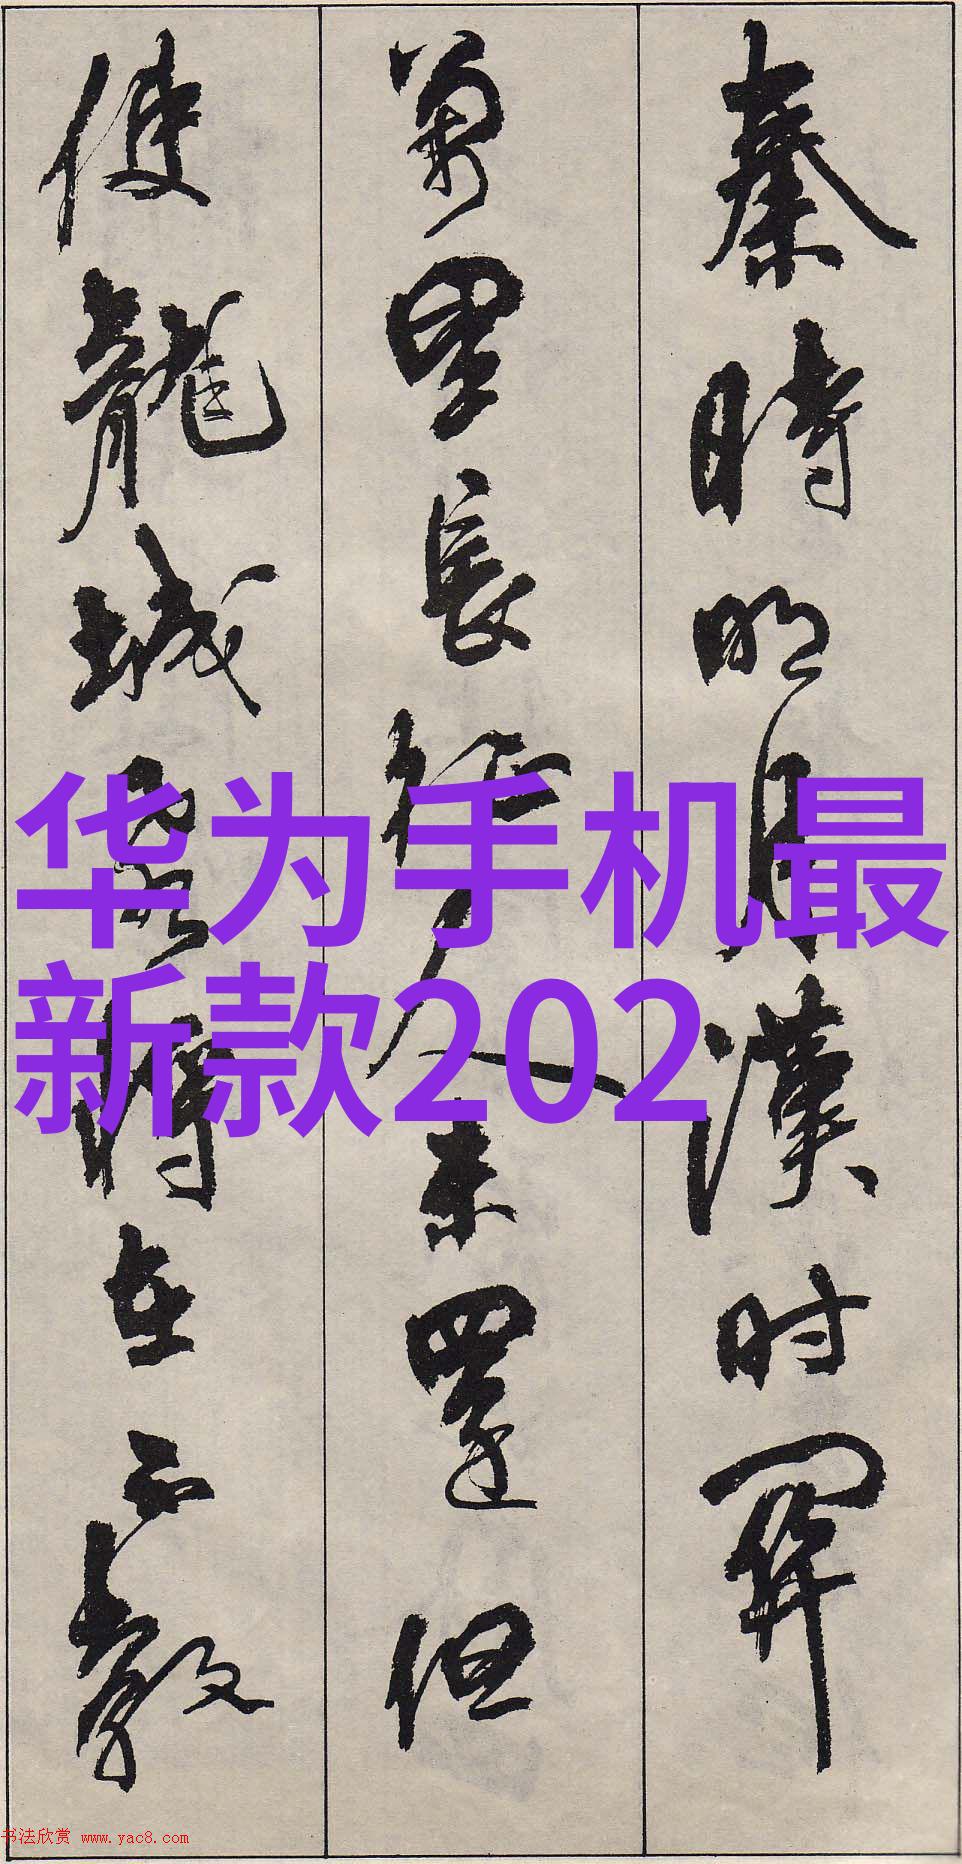 秦時明月漢时關
萬里長征人未還但
使龍城飛將在不教
华为手机最
新款202
书法欣赏 www.yac8.com